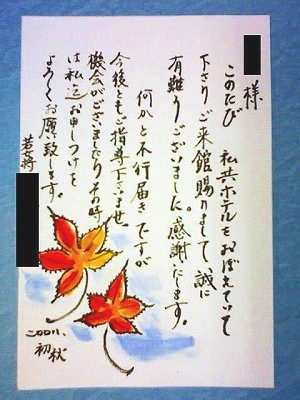 様
このたび 私共ホテルをおぼえていて
下さりご来館賜りまして誠に
有難うございました。感謝いたします。
何かと不行届きですが
今後ともご指導下さいませ
機会がございましたらその時
は私迄お申しつけを
よろしくお願い致します。
若
初秋